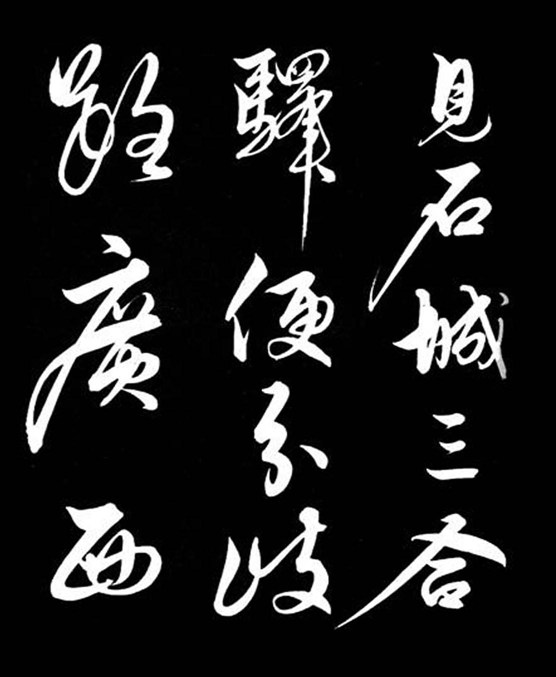 見石城三合
驛便分岐
路廣西